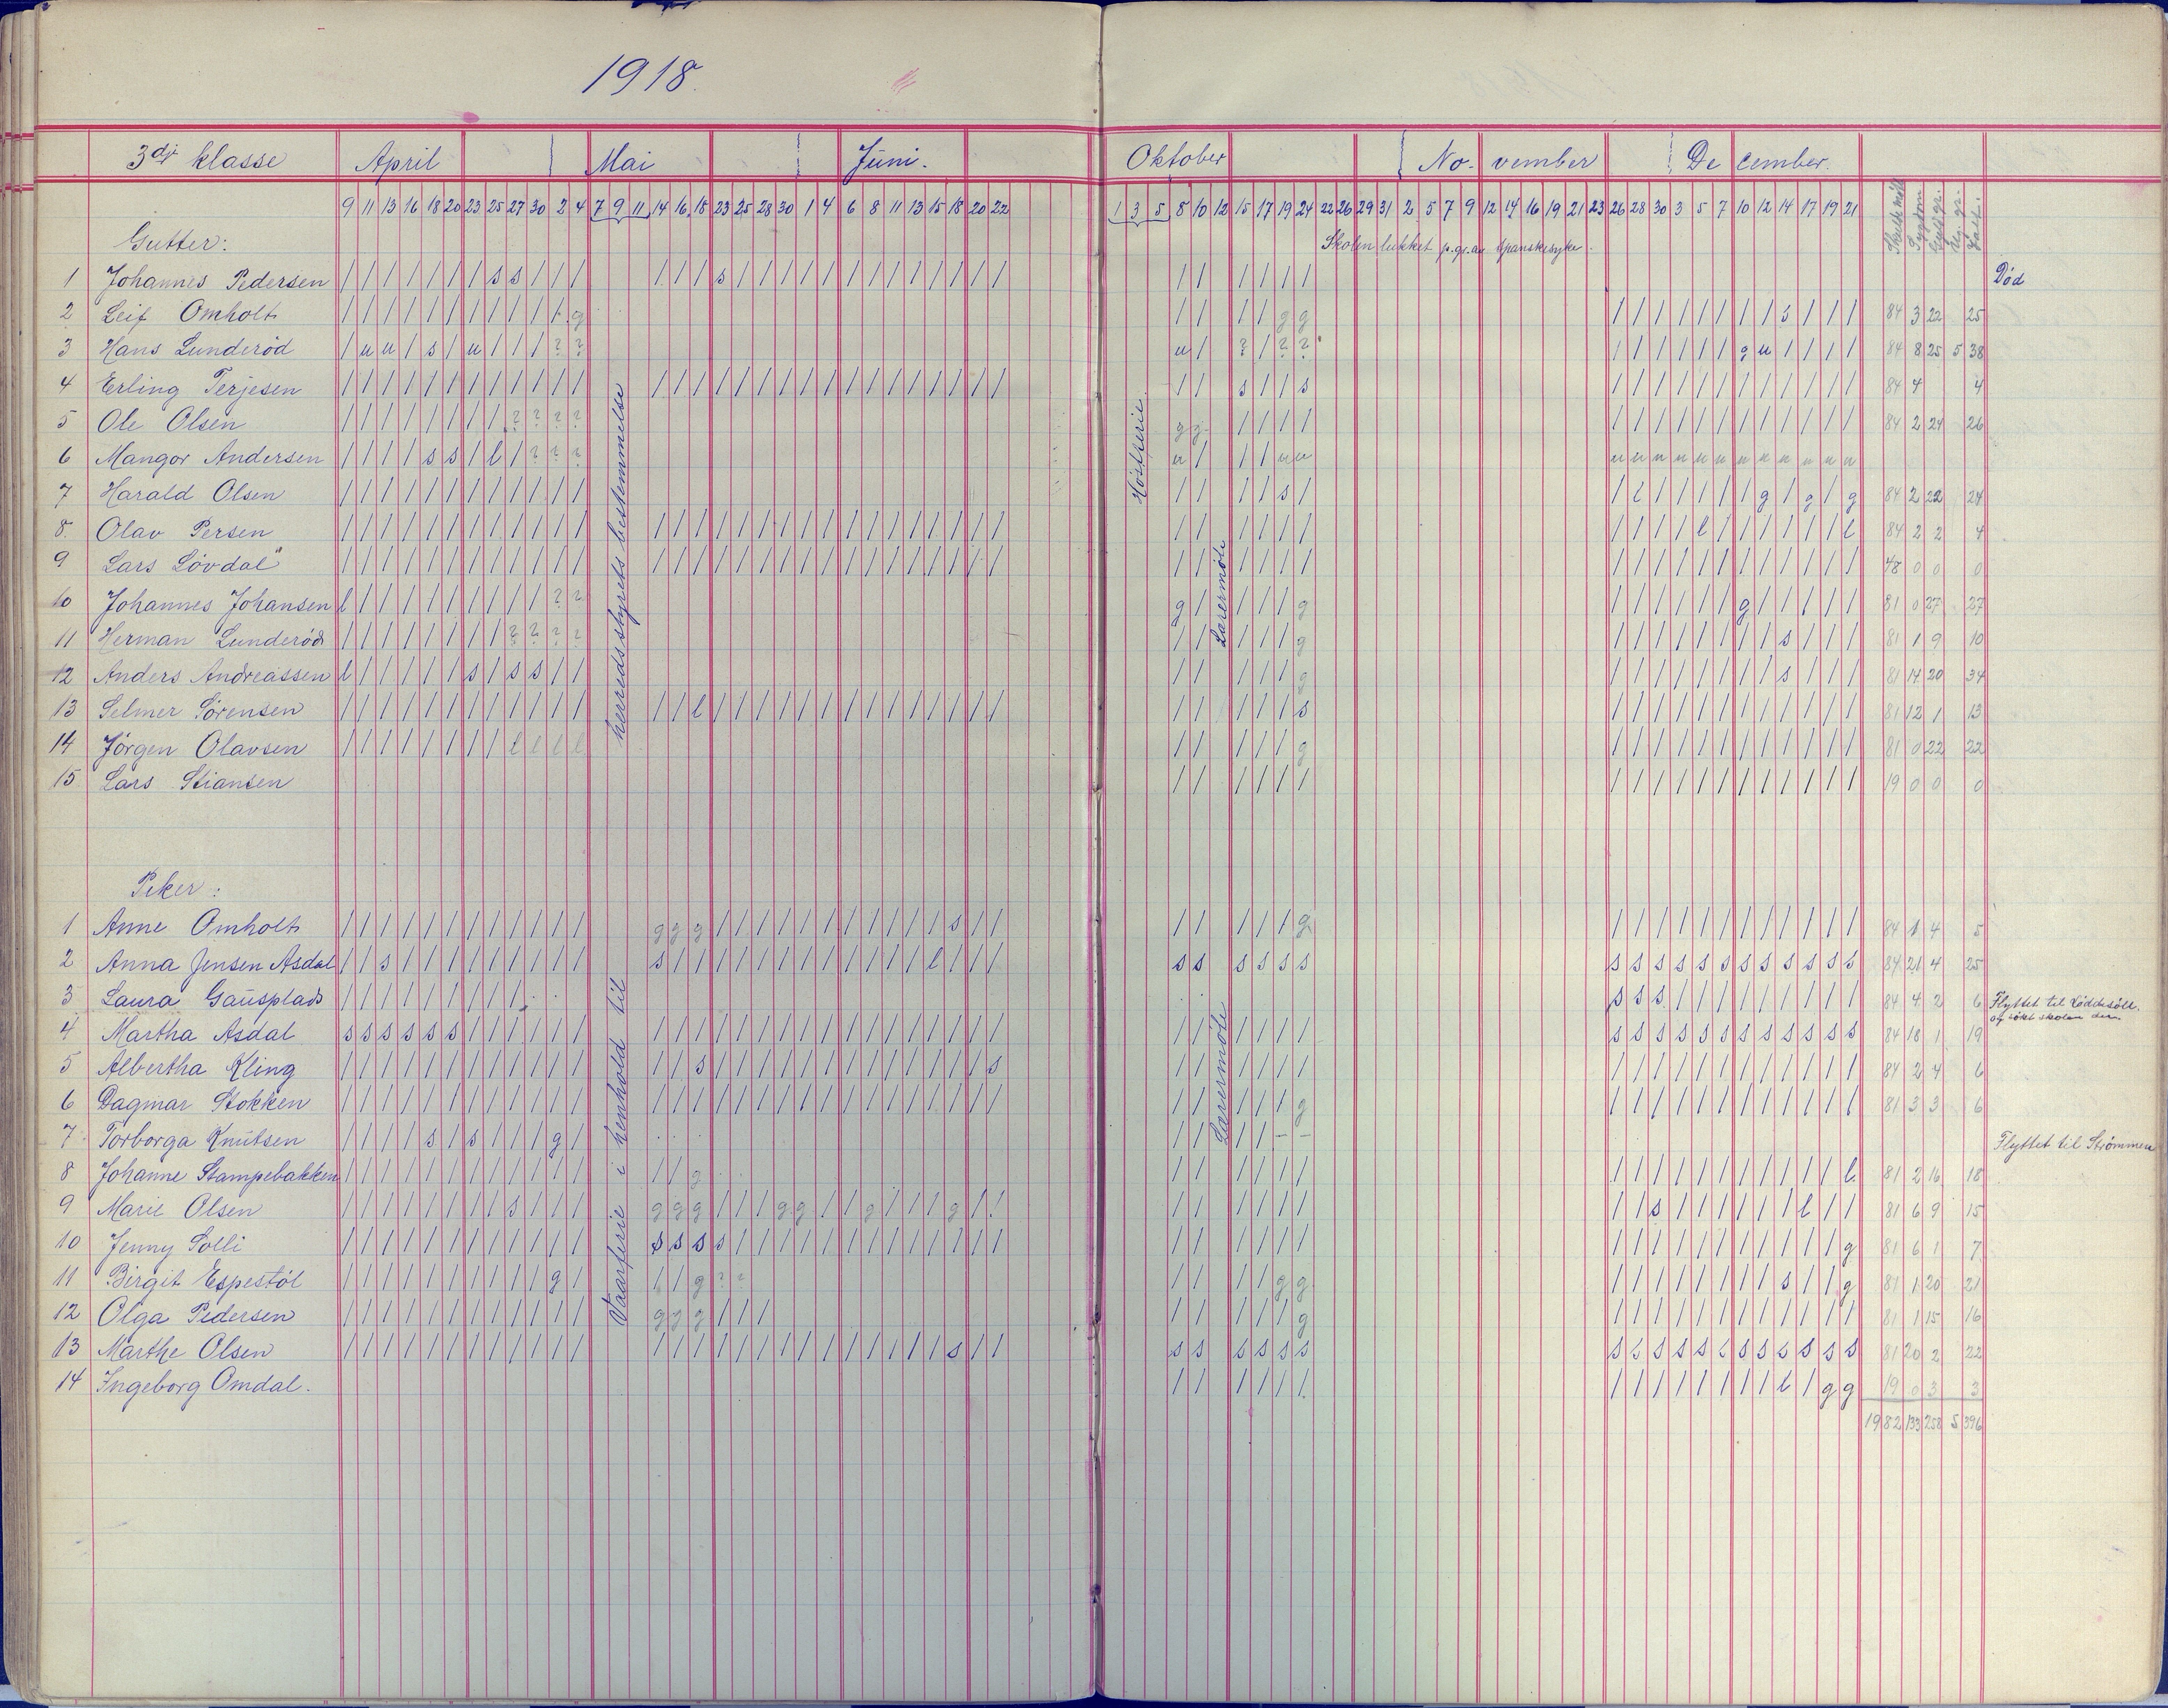 1918.
3dj klasse April Mai Juni. Oktober No- vember De cember.
9 11 13 16 18 20 23 25 27 30 2 4 7 9 11 14 16 18 23 25 28 30 1 4 6 8 11 13 15 18 20 22 1 3 5 8 10 12 15 17 19 24 22 26 29 31 2 5 7 9 12 14 16 19 21 23 26 28 30 3 5 7 10 12 14 17 19 21
Gutter: Skolen lukket p.gr.av spanskesyke.
1 Johannes Pedersen / / / / / / / s s / / / / / / s / / / / / / / / / / / / / / / / / / / Død
2 Leif Omholt / / / / / / / / / / / g / / / / g g / / / / / / / / s / / / 84 3 22 25
3 Hans Lunderød / u u / s / u / / / ? ? u / ? / ? ? / / / / / / g u / / / / 84 8 25 5 38
4 Erling Terjesen / / / / / / / / / / / / / / / / / / / / / / / / / / / / / / / s / / s / / / / / / / / / / / / 84 4 4
5 Ole Olsen / / / / / / / / ? ? ? ? g g / / / / / / / / / / / / / / / / 84 2 24 26
6 Mangor Andersen / / / / s s / l / ? ? ? u / / / u u u u u u u u u u u u u u
7 Harald Olsen / / / / / / / / / / / / / / / / s / / l / / / / / g / g / g 84 2 22 24
8. Olav Persen / / / / / / / / / / / / / / / / / / / / / / / / / / / / / / / / / / / / / / / l / / / / / / l 84 2 2 4
9 Lars Lövdal / / / / / / / / / / / / / / / / / / / / / / / / / / / / / / / / / / / / / / / / / / / / / / / 48 0 0 0
10 Johannes Johansen l / / / / / / / / / ? ? g / / / / g / / / / / / g / / / / / 81 0 27 27
11 Herman Lunderød / / / / / / / / ? ? ? ? / / / / / g / / / / / / / / s / / / 81 1 9 10
12 Anders Andreassen l / / / / / s / s s / / / / / / / g / / / / / / / / s / / / 81 14 20 34
13 Selmer Sörensen / / / / / / / / / / / / / / l / / / / / / / / / / / / / / / / / / / s / / / / / / / / / / / / 81 12 1 13
14 Jörgen Olavsen / / / / / / / / l l l l / / / / / g / / / / / / / / / / / / 81 0 22 22
15 Lars Stiansen / / / / / / / / / / / / / / / / / / 19 0 0 0
Vaarferie i henhold til herredsstyrets bestemmelse
Höstferie.
Lærermöte
Piker:
1 Anne Omholt / / / / / / / / / / / / g g g / / / / / / / / / / / s / / / / / / / g / / / / / / / / / / / / 84 1 4 5
2 Anna Jensen Asdal / / s / / / / / / / / / s / / / / / / / / / / / / l / / / s s s s s s s s s s s s s s s s s s 84 21 4 25
3 Laura Gausplads / / / / / / / / / s s s / / / / / / / / / 84 4 2 6 Flyttet til
og sökt skolen der.
4 Martha Asdal s s s s s s / / / / / / / / / / / / / / / / / / / / / / / / / / / / / s s s s s s s s s s s s 84 18 1 19
5 Albertha Kling / / / / / / / / / / / / / / s / / / / / / / / / / / / / s / / / / / / / / / / / / / / / / / / 84 2 4 6
6 Dagmar Stokken / / / / / / / / / / / / / / / / / / / / / / / / / / / / / / / / / / g / / / / / / / / / / / / 81 3 3 6
7 Torborga Knutsen / / / / s / s / / / g / / / / / – – Flyttet til Strömmen
8 Johanne Stampebakken / / / / / / / / / / / / / / g / / / / / / / / / / / / / / / / / l 81 2 16 18
9 Marie Olsen / / / / / / / / s / / / g g g / / / g g / / g / / / g / / / / / / / / / / s / / / / / / l / / 81 6 9 15
10 Jenny Solli / / / / / / / / / / / / s s s s / / / / / / / / / / / / / / / / / / / / / / / / / / / / / / g 81 6 1 7
11 Birgit Espestöl / / / / / / / / / / g / / / g ? ? / / / / g g / / / / / / / / s / / g 81 1 20 21
12 Olga Pedersen / / / / / / / / / / / / g g g / / / / / / / / g / / / / / / / / / / / / 81 1 15 16
13 Marthe Olsen / / / / / / / / / / / / / / / / / / / / / / / / / / s / / s s s s s s s s s s s s s s s s s s s 81 20 2 22
14 Ingeborg Omdal. / / / / / / / / / / / / / / l / g g 19 0 3 3
1982 133 258 5 396
Lærermöte